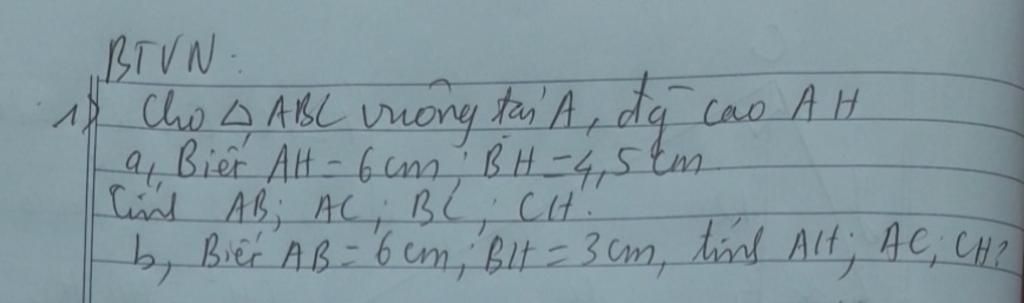 BTVN:
1) Cho △ ABC vuông tại A, đg cao AH
a, Biết AH = 6 cm; BH = 4,5 cm
Tính AB; AC; BC; CH.
b, Biết AB = 6 cm; BH = 3 cm, tính AH; AC; CH?